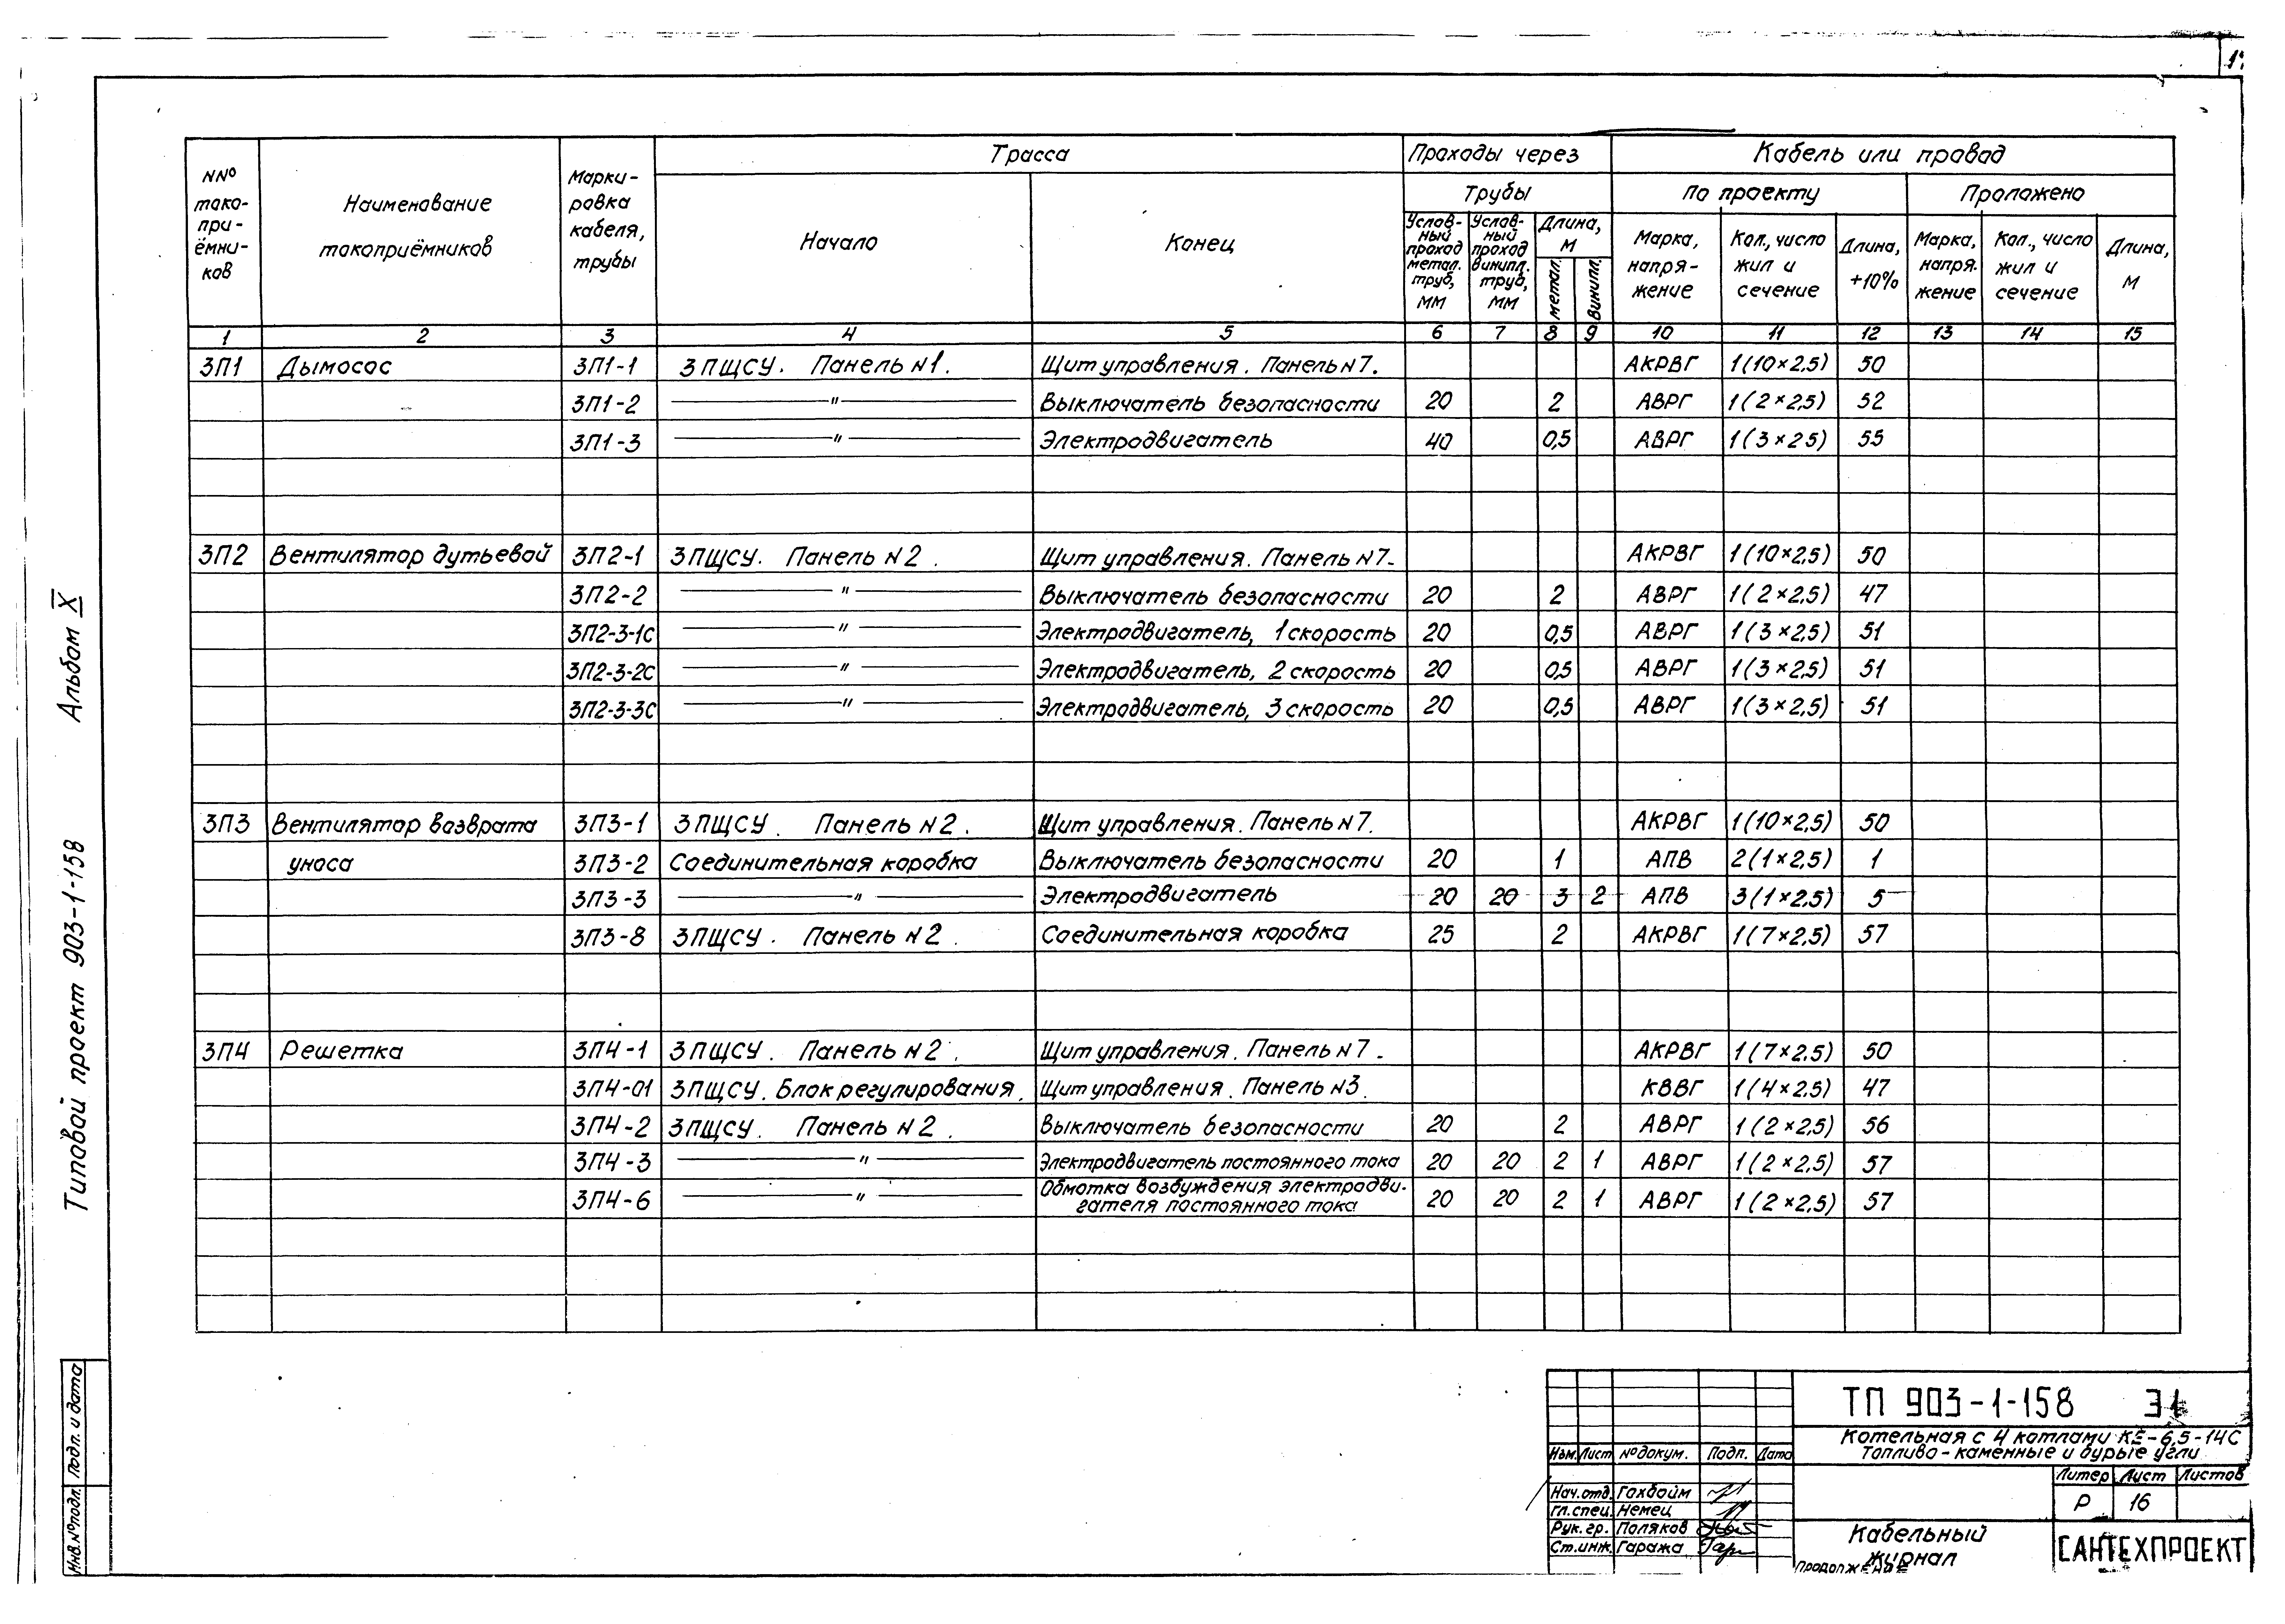 Трасса
Проходы через
Трубы
Кабель или провод
По проекту
Проложено
NNº
токо-
при-
ёмни-
ков
Наименование
токоприёмников
Марки-
ровка
кабеля,
трубы
Начало
Конец
Услов-
ный
проход
метал.
труб,
мм
Услов-
ный
проход
винипл.
труб,
мм
Длина,
м
метал.
винипл.
Марка,
напря-
жение
Кол., число
жил и
сечение
Длина,
+10%
Марка,
напря.
жение
Кол., число
жил и
сечение
Длина,
м
1 2 3 4 5 6 7 8 9 10 11 12 13 14 15
3П1 Дымосос 3П1-1 3ПЩСУ. Панель N1. Щит управления. Панель N7. АКРВГ 1(10×2,5) 50
3П1-2 " Выключатель безопасности 20 2 АВРГ 1(2×2,5) 52
3П1-3 " Электродвигатель 40 0,5 АВРГ 1(3×25) 55
3П2 Вентилятор дутьевой 3П2-1 3ПЩСУ. Панель N2. Щит управления. Панель N7. АКРВГ 1(10×2,5) 50
3П2-2 " Выключатель безопасности 20 2 АВРГ 1(2×2,5) 47
3П2-3-1С " Электродвигатель, 1 скорость 20 0,5 АВРГ 1(3×2,5) 51
3П2-3-2С " Электродвигатель, 2 скорость 20 0,5 АВРГ 1(3×2,5) 51
3П2-3-3С " Электродвигатель, 3 скорость 20 0,5 АВРГ 1(3×2,5) 51
3П3 Вентилятор возврата 3П3-1 3ПЩСУ. Панель N2. Щит управления. Панель N7. АКРВГ 1(10×2,5) 50
уноса 3П3-2 Соединительная коробка Выключатель безопасности 20 1 АПВ 2(1×2,5) 1
3П3-3 " Электродвигатель 20 20 3 2 АПВ 3(1×2,5) 5
3П3-8 3ПЩСУ. Панель N2. Соединительная коробка 25 2 АКРВГ 1(7×2,5) 57
3П4 Решетка 3П4-1 3ПЩСУ. Панель N2. Щит управления. Панель N7. АКРВГ 1(7×2,5) 50
3П4-01 3ПЩСУ. Блок регулирования. Щит управления. Панель N3. КВВГ 1(4×2,5) 47
3П4-2 3ПЩСУ. Панель N2. Выключатель безопасности 20 2 АВРГ 1(2×2,5) 56
3П4-3 " Электродвигатель постоянного тока 20 20 2 1 АВРГ 1(2×2,5) 57
3П4-6 " Обмотка возбуждения электродви-
гателя постоянного тока 20 20 2 1 АВРГ 1(2×2,5) 57
Типовой проект 903-1-158 Альбом X
Подп. и дата
Инв.Nºподл.
ТП 903-1-158
Котельная с 4 котлами КЕ-6,5-14С
Топливо - каменные и бурые угли
Изм. Лист Nº докум. Подп. Дата
Нач.отд. Гохбойм
Гл.спец. Немец
Рук.гр. Поляков
Ст.инж. Гаража
Литер Лист Листов
Р 16
Кабельный
журнал
Продолжение
САНТЕХПРОЕКТ